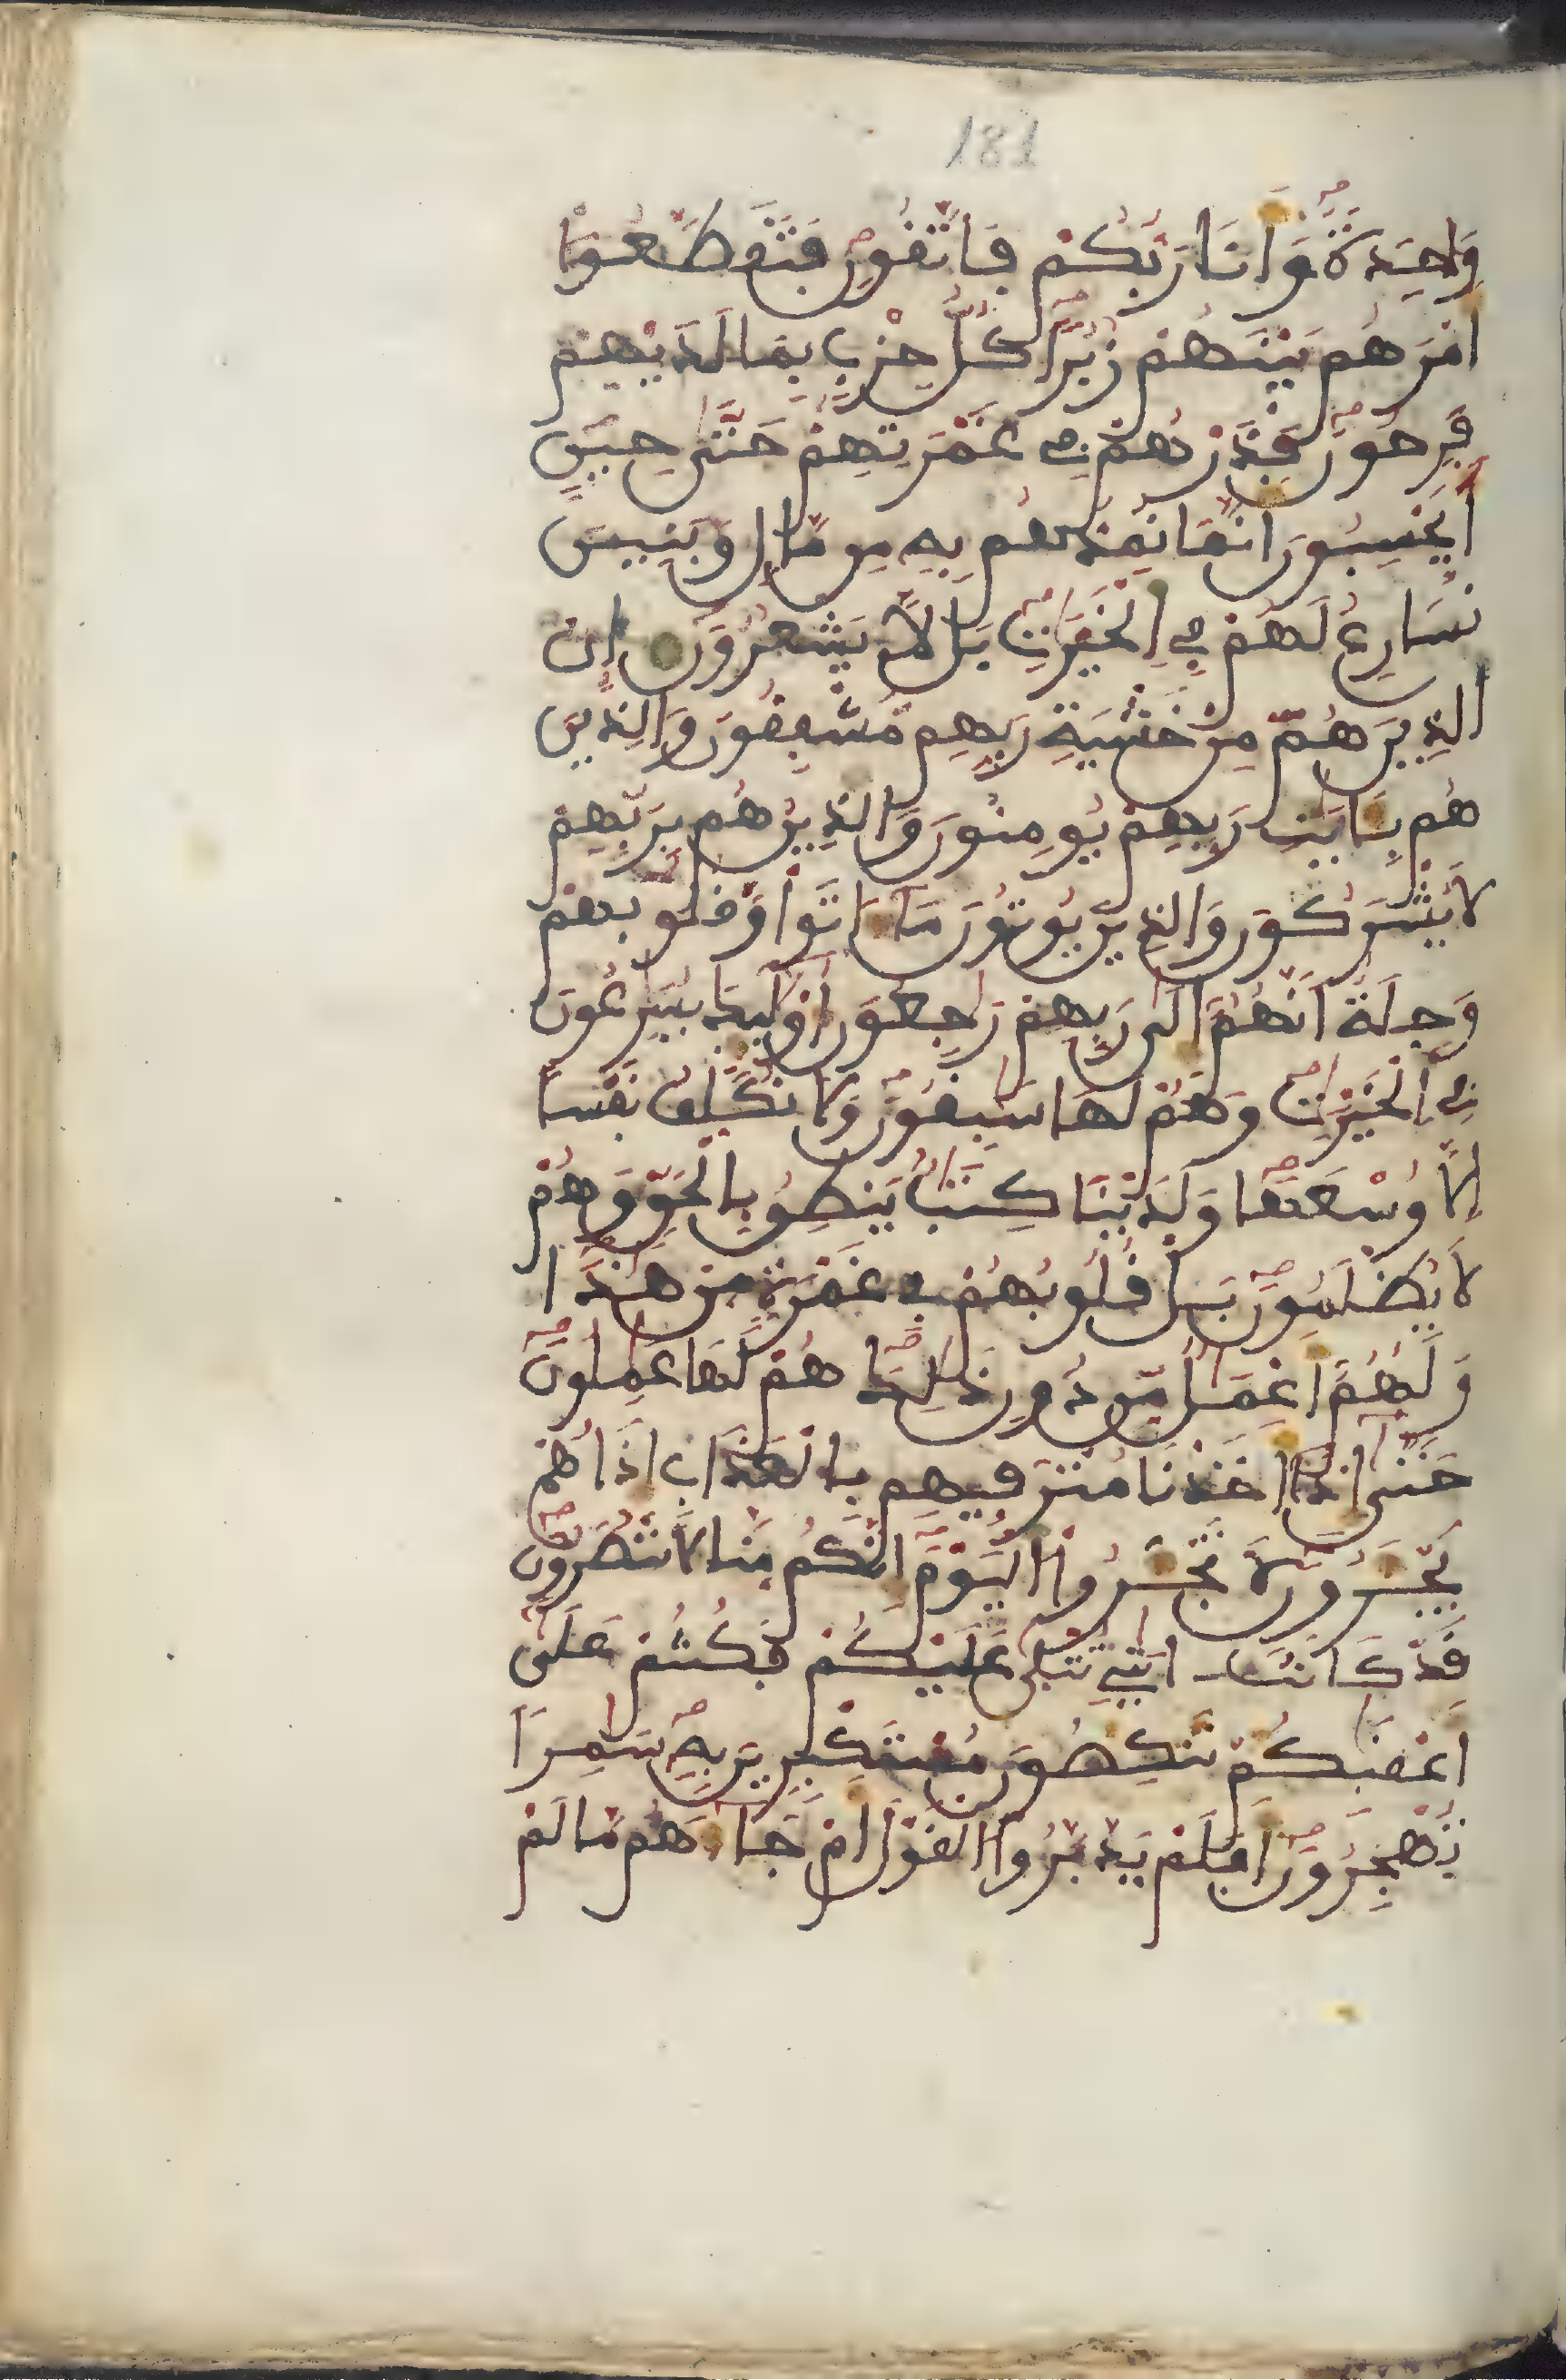 181
وَاحِدَةً وَأَنَا رَبُّكُمْ فَاتَّقُونِ فَتَقَطَّعُوا
أَمْرَهُم بَيْنَهُمْ زُبُرًا كُلُّ حِزْبٍ بِمَا لَدَيْهِمْ
فَرِحُونَ فَذَرْهُمْ فِي غَمْرَتِهِمْ حَتَّى حِينٍ
أَيَحْسِبُونَ أَنَّمَا نُمِدُّهُم بِهِ مِن مَّالٍ وَبَنِينَ
نُسَارِعُ لَهُمْ فِي الْخَيْرَاتِ بَل لَّا يَشْعُرُونَ إِنَّ
الذِينَ هُم مِّنْ خَشْيَةِ رَبِّهِم مُّشْفِقُونَ وَالذِينَ
هُم بِـَٔايَٰتِ رَبِّهِمْ يُومِنُونَ وَالذِينَ هُم بِرَبِّهِمْ
لَا يُشْرِكُونَ وَالذِينَ يُوتُونَ مَا ءَاتَوا وَّقُلُوبُهُمْ
وَجِلَةٌ أَنَّهُمُ إِلَى رَبِّهِمْ رَاجِعُونَ أُوْلَٰئِكَ يُسَٰرِعُونَ
فِي الْخَيْرَٰتِ وَهُمْ لَهَا سَٰبِقُونَ وَلَا نُكَلِّفُ نَفْسًا
إِلَّا وُسْعَهَا وَلَدَيْنَا كِتَٰبٌ يَنطِقُ بِالْحَقِّ وَهُمْ
لَا يُظْلَمُونَ بَلْ قُلُوبُهُمْ فِي غَمْرَةٍ مِّنْ هَٰذَا
وَلَهُمُ أَعْمَٰلٌ مِّن دُونِ ذَٰلِكَ هُمْ لَهَا عَٰمِلُونَ
حَتَّى إِذَا أَخَذْنَا مُتْرَفِيهِم بِالْعَذَابِ إِذَا هُمْ
يَجْـَٔرُونَ لَا تَجْـَٔرُوا الْيَوْمَ إِنَّكُم مِّنَّا لَا تُنصَرُونَ
قَدْ كَانَتَ ـايَٰتِي تُتْلَى عَلَيْكُمْ فَكُنتُمْ عَلَى
أَعْقَٰبِكُمْ تَنكِصُونَ مُسْتَكْبِرِينَ بِهِ سَٰمِرًا
تُهْجِرُونَ أَفَلَمْ يَدَّبَّرُوا الْقَوْلَ أَمْ جَاءَهُم مَّا لَمْ